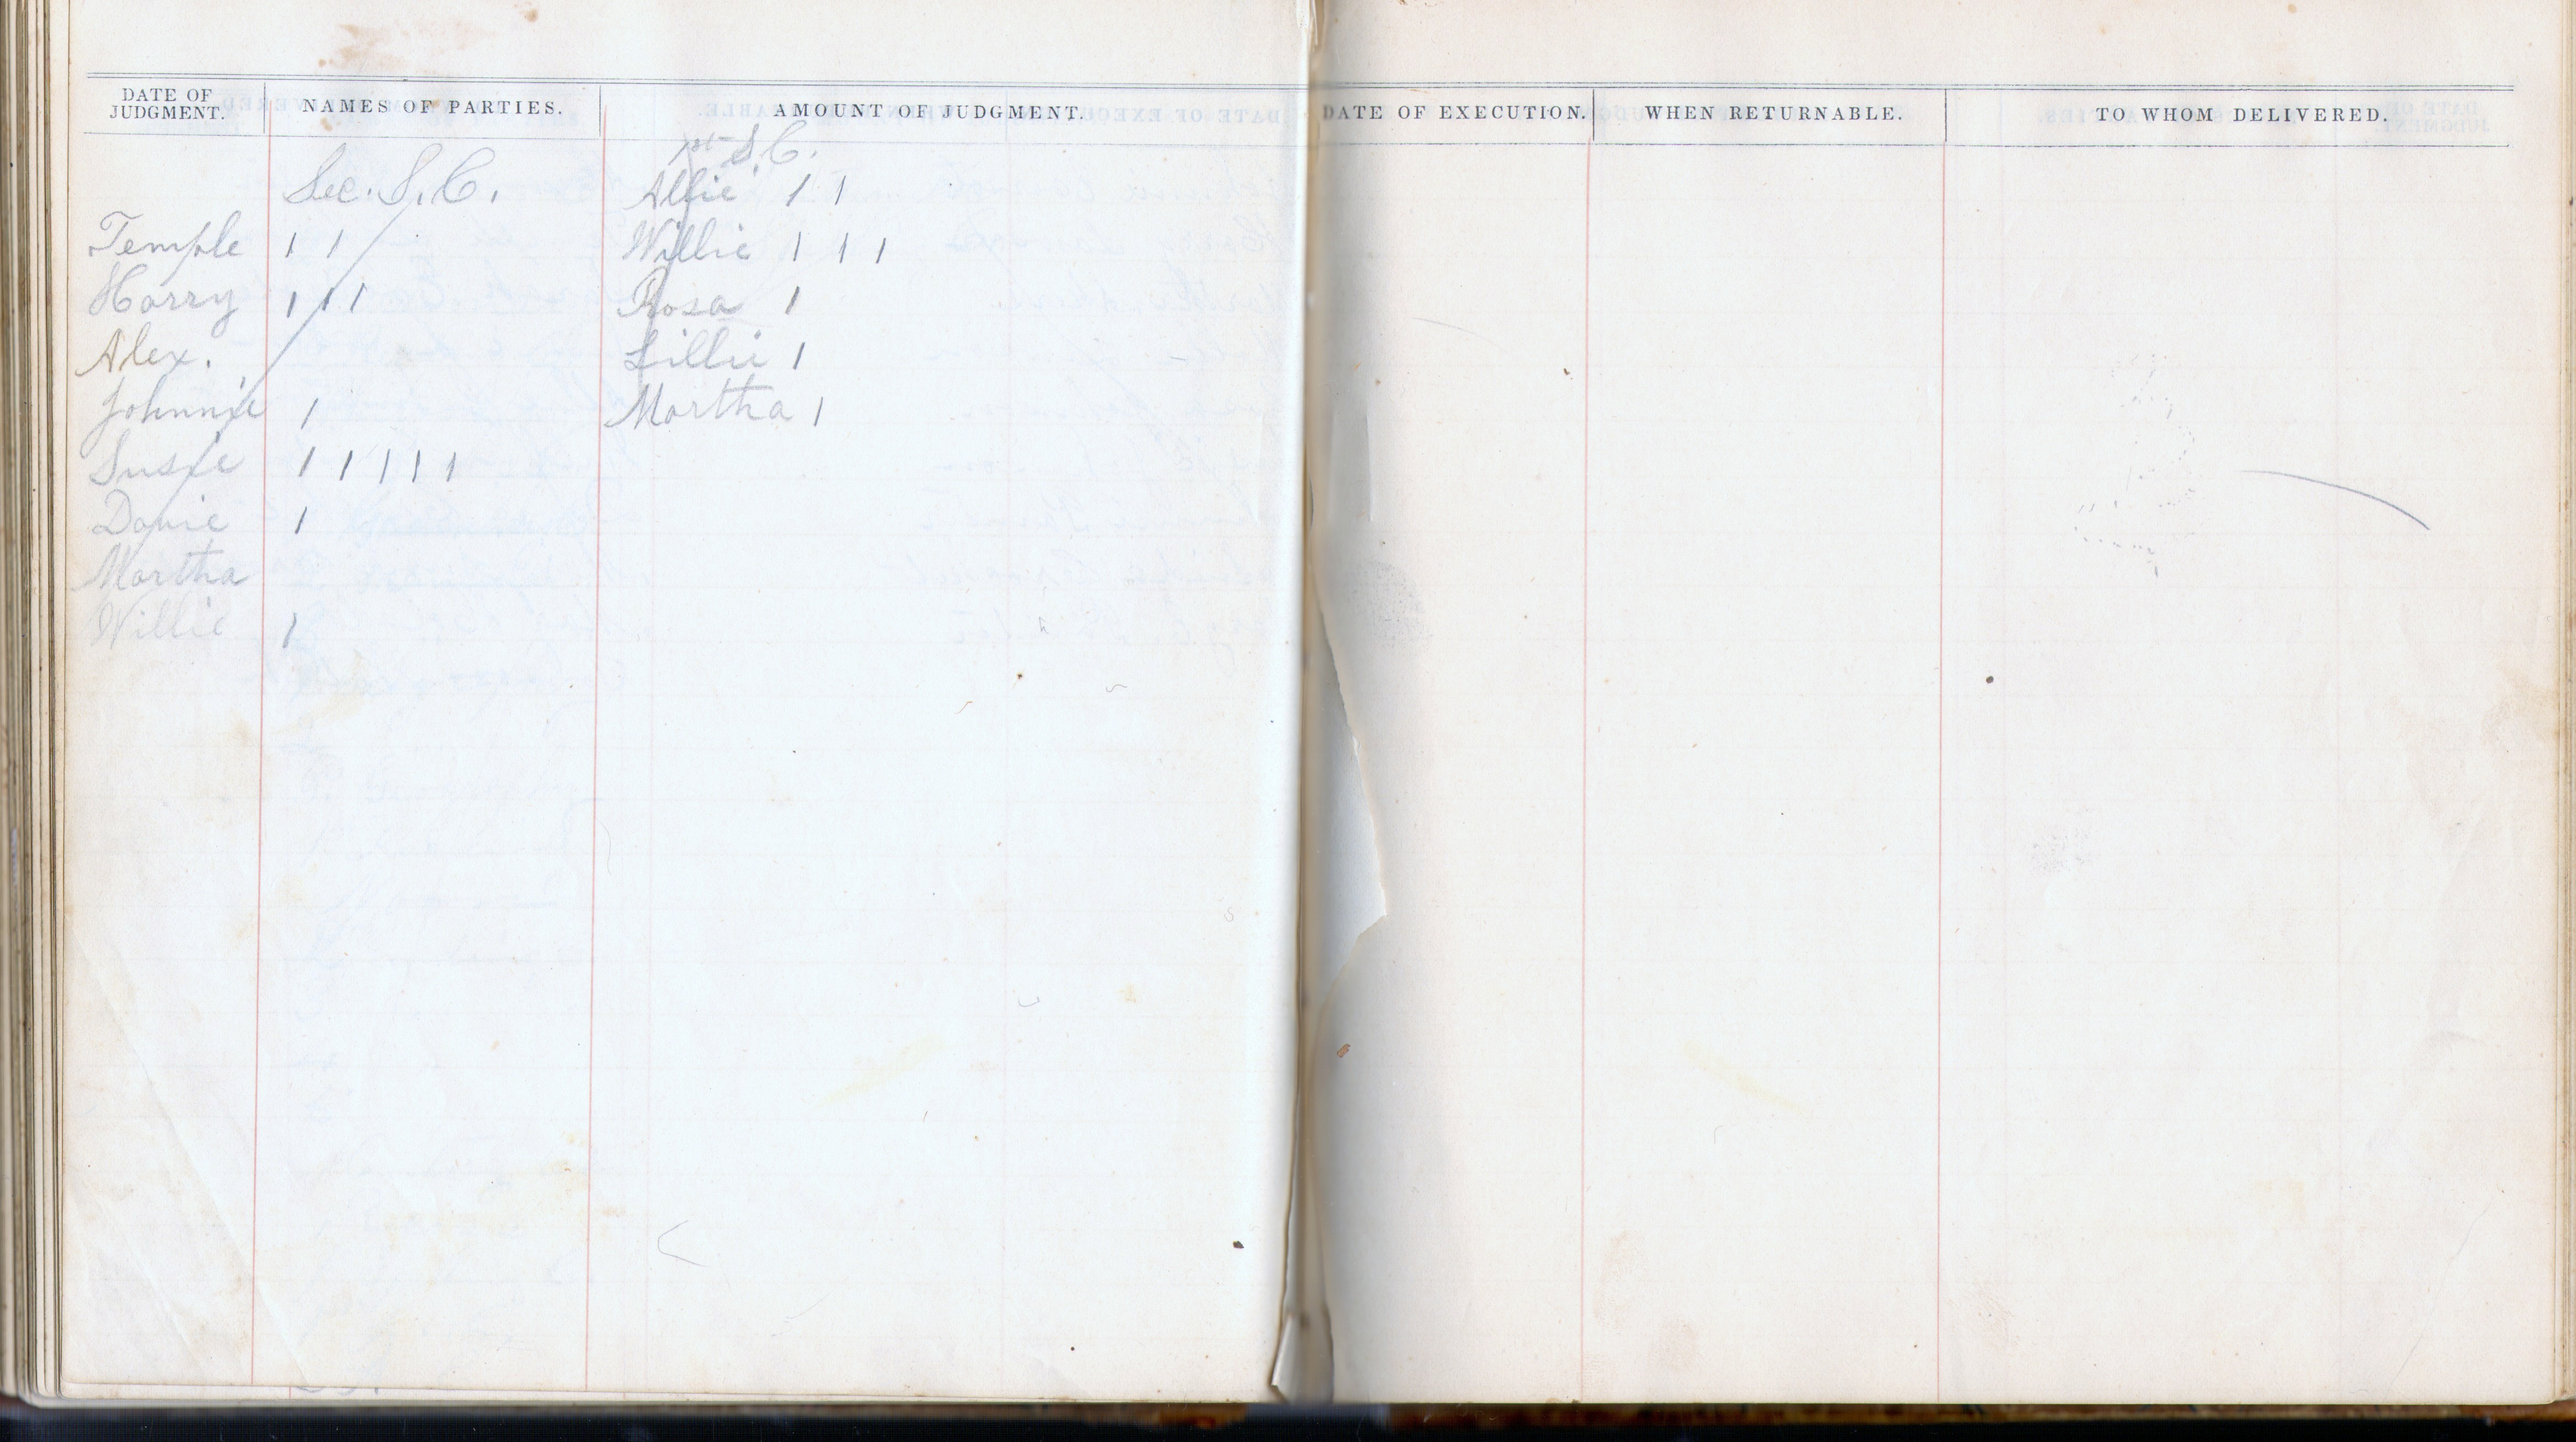 DATE OF JUDGMENT. NAMES OF PARTIES. AMOUNT OF JUDGMENT. DATE OF EXECUTION. WHEN RETURNABLE. TO WHOM DELIVERED.
Sec. S. C.
Temple 1 1
Harry 1 1 1
Alex.
Johnnie 1
Susie 1 1 1 1 1
Davie 1
Martha
Willie 1
1st S. C.
Allie 1 1
Willie 1 1 1
Rosa 1
Lillie 1
Martha 1